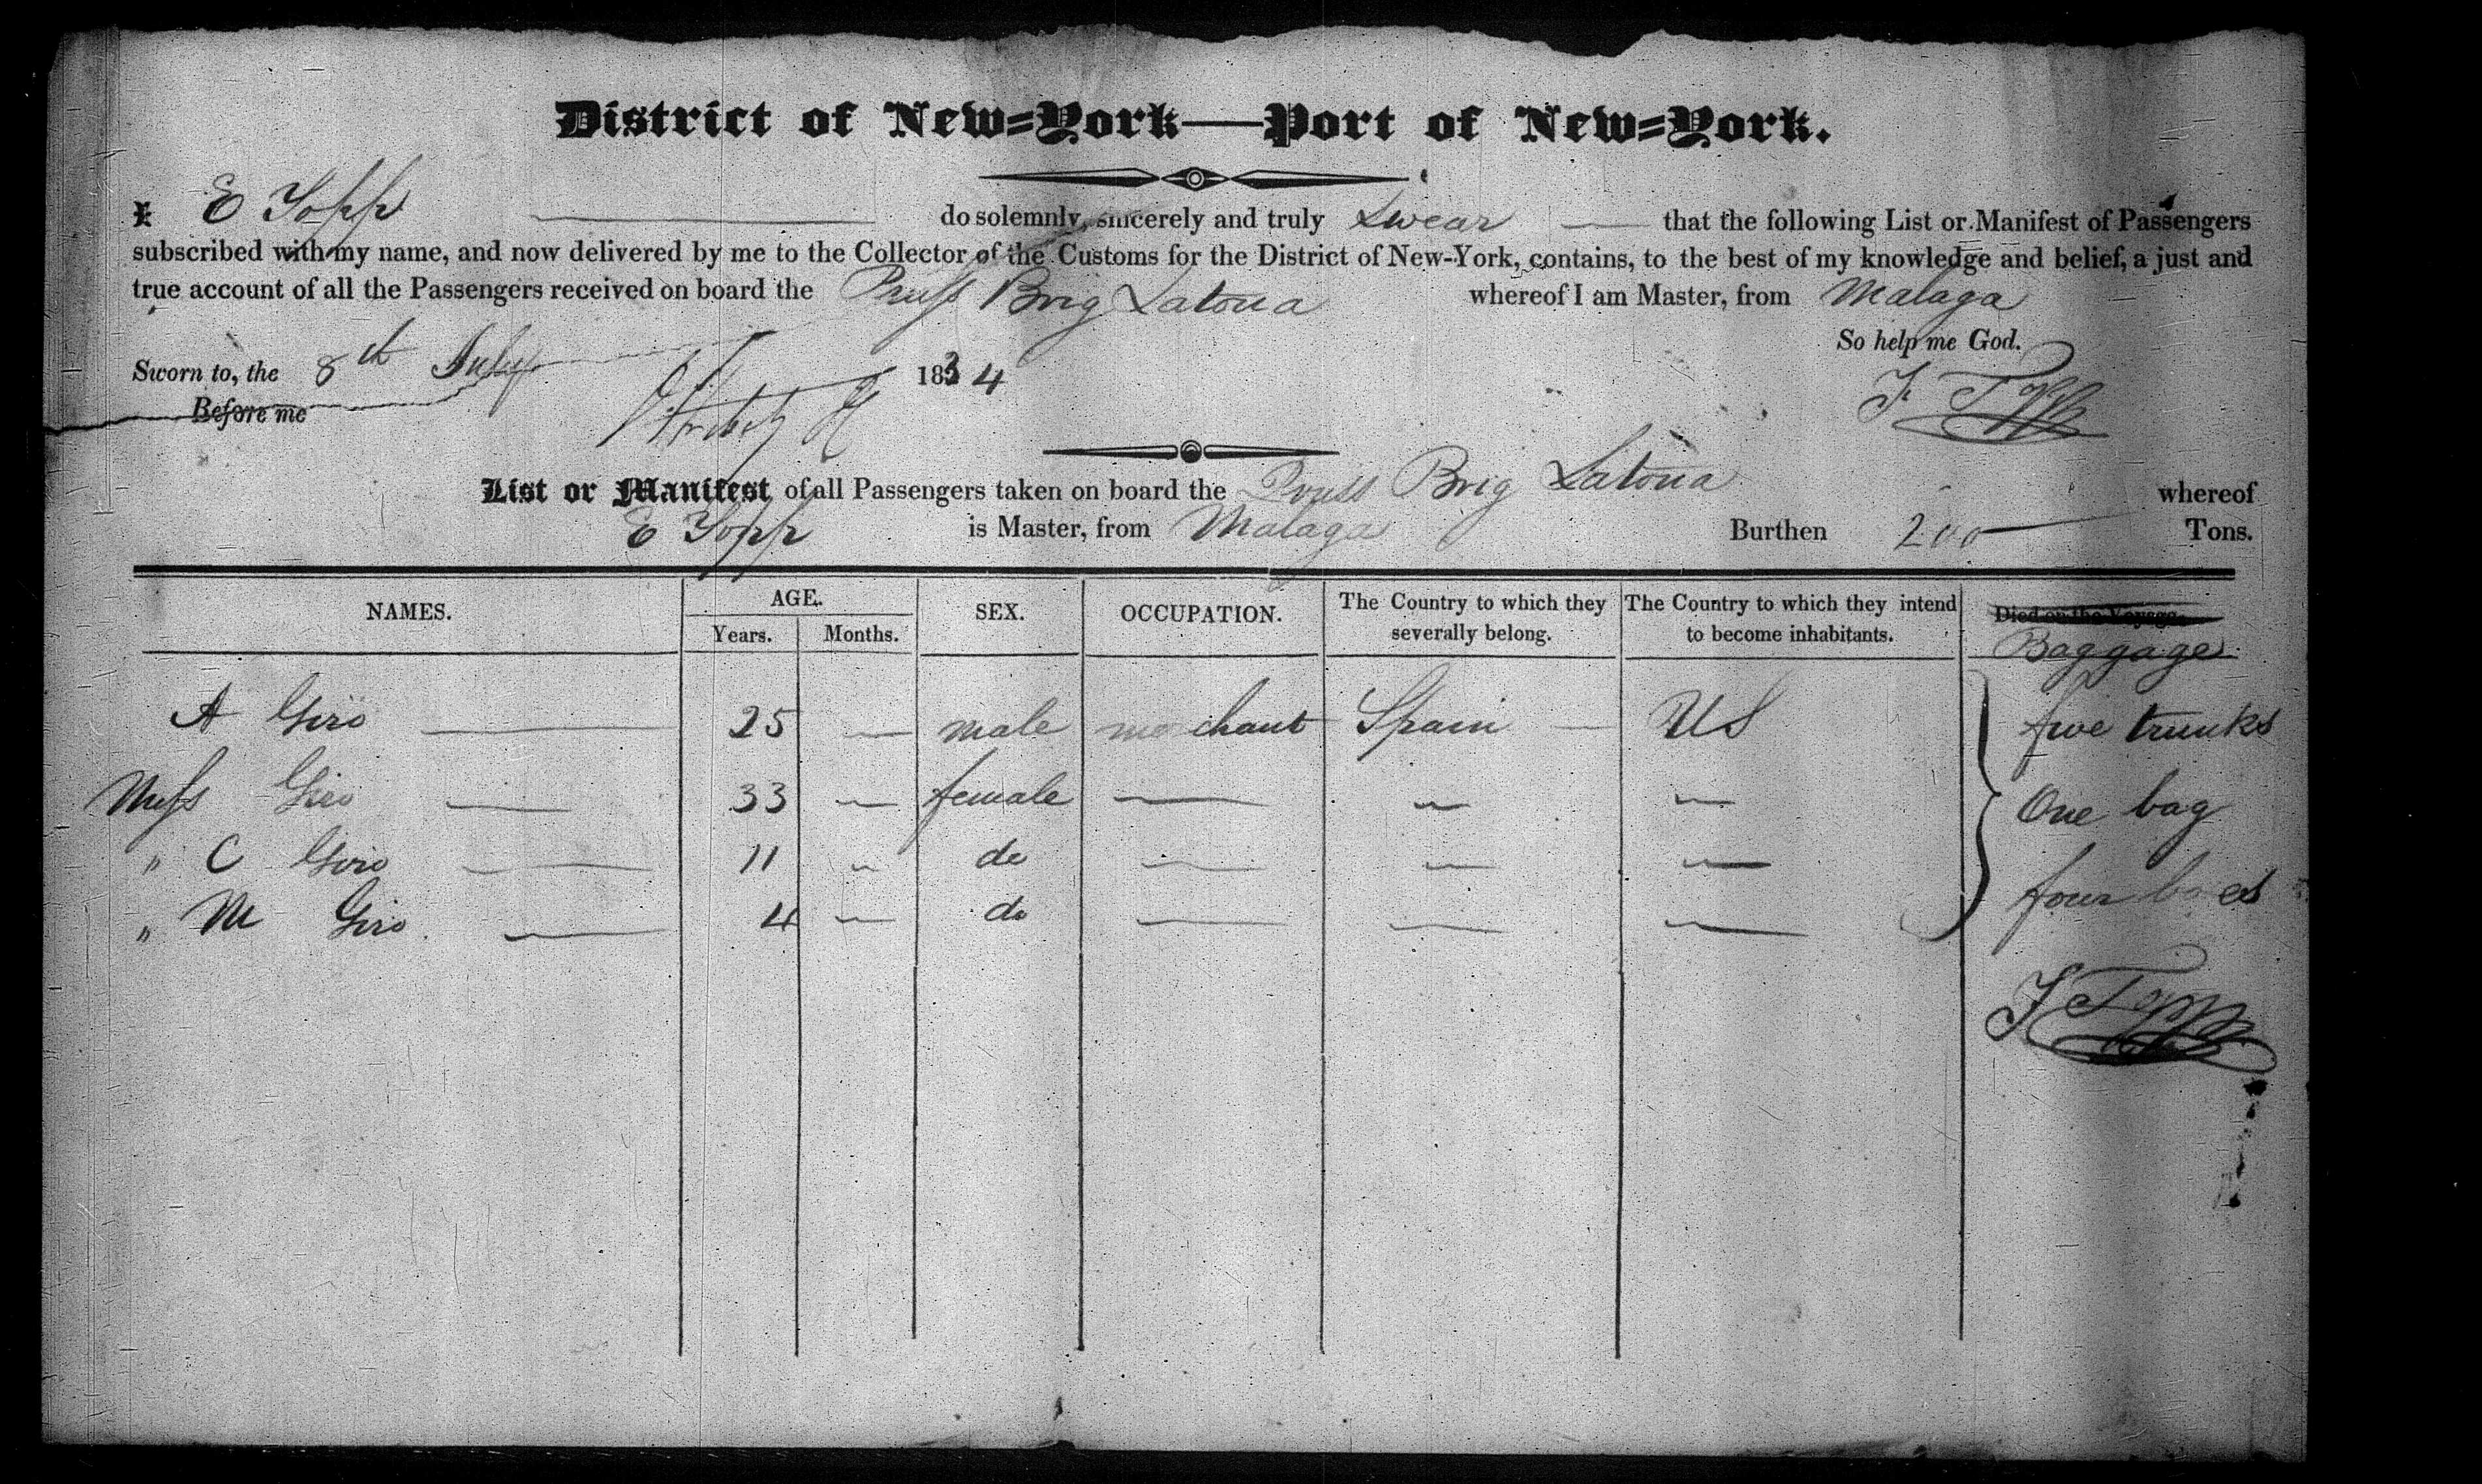 District of New=York—Port of New=York.
I E Topp do solemnly, sincerely and truly Swear that the following List or Manifest of Passengers
subscribed with my name, and now delivered by me to the Collector of the Customs for the District of New-York, contains, to the best of my knowledge and belief, a just and
true account of all the Passengers received on board the Pruss Brig Latona whereof I am Master, from Malaga
So help me God.
Sworn to, the 8th July 1834
Before me
List or Manifest of all Passengers taken on board the Pruss Brig Latona whereof
E Topp is Master, from Malaga Burthen 200 Tons.
NAMES. AGE. Years. Months. SEX. OCCUPATION. The Country to which they severally belong. The Country to which they intend to become inhabitants. Died on the Voyage. Baggage
A Giro 25 — male merchant Spain — US five trunks
Miss Giro 33 — female — — — One bag
" C Giro 11 — do — — —
" M Giro 4 — do — — — four